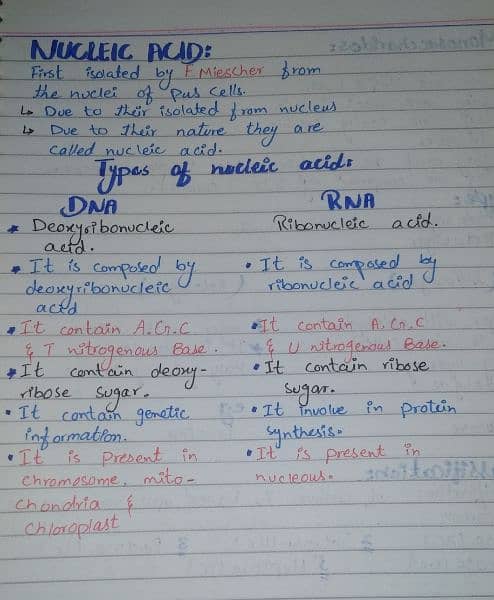 NUCLEIC ACID:
First isolated by F Miescher from
the nuclei of pus cells.
↳ Due to their isolated from nucleus
↳ Due to their nature they are
called nucleic acid.
Types of nucleic acid:
DNA
* Deoxyribonucleic
acid.
• It is composed by
deoxyribonucleic
acid
• It contain A.G.C
& T nitrogenous Base.
* It contain deoxy-
ribose sugar.
• It contain genetic
information.
• It is present in
chromosome. mito-
chondria &
chloroplast
RNA
Ribonucleic acid.
• It is composed by
ribonucleic acid
• It contain A, G, C
& U nitrogenous Base.
• It contain ribose
sugar.
• It involve in protein
synthesis.
• It is present in
nucleous.